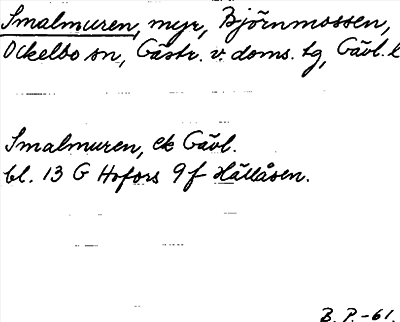 Smalmuren, myr, Björnmossen,
Ockelbo sn, Gästr. v. doms. tg, Gävl. l
Smalmuren, ek Gävl.
bl. 13 G Hofors 9f Hällåsen.
B. P. -61.